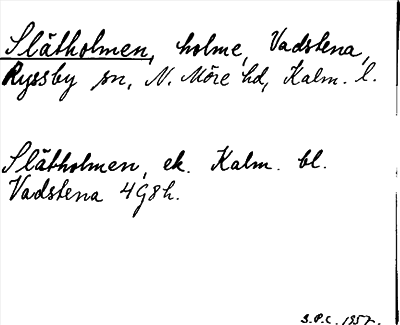 Slätholmen, holme, Vadstena,
Ryssby sn, N. Möre hd, Kalm. l.
Slätholmen, ek. Kalm. bl.
Vadstena 4G8h.
S.P.C. 1957.